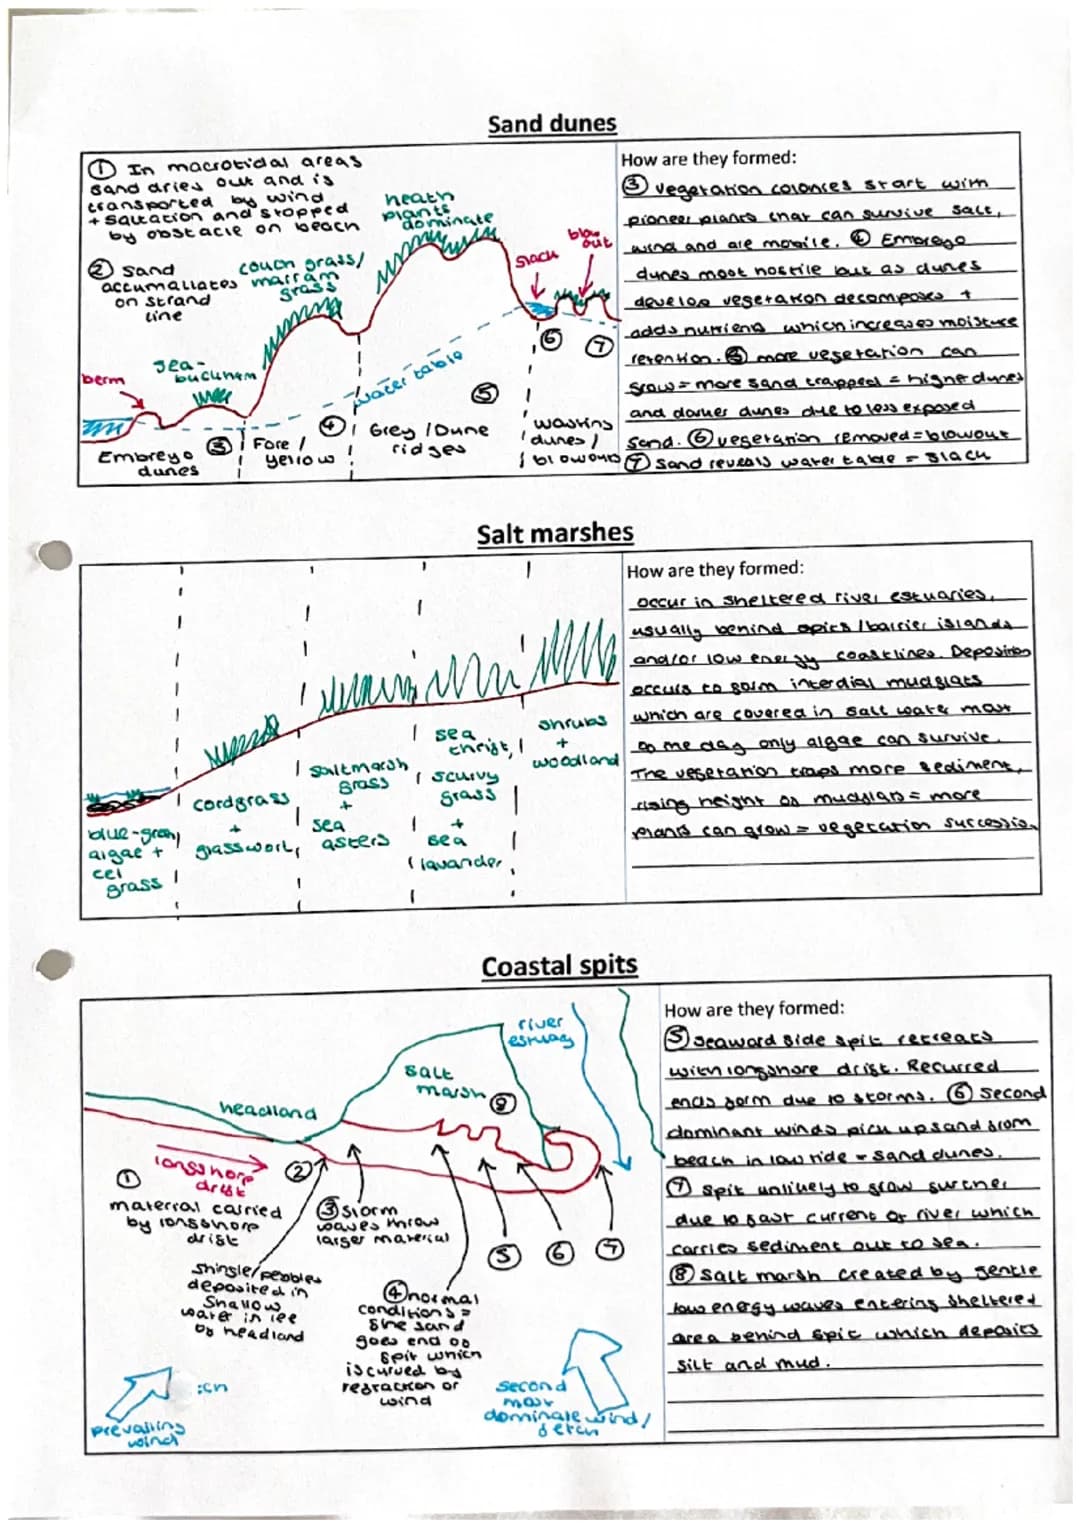 Sand dunes
① In macrotidal areas
sand dries out and is
transported by wind
+ saltation and stopped
by obstacle on beach
② Sand
accumallates
on strand
line
couch grass/
marram
grass
heath
plants
dominate
slack
blow
out
sea-
buckthorn
berm
water table
Embreyo
dunes
③
Fore /
yellow
④
Grey / Dune
ridges
⑤
⑥
⑦
dunes /
blowouts
How are they formed:
③ vegetation colonises start with
pioneer plants that can survive salt,
wind and are mobile. ④ Embreyo
dunes most hostile but as dunes
develop vegetation decomposes +
adds nutrients which increases moisture
retention. ⑤ more vegetation can
grow = more sand trapped = higher dunes
and darker dunes due to less exposed
sand. ⑥ vegetation removed = blowout
⑦ Sand reveals water table = slack
Salt marshes
blue-green
algae +
eel
grass
cordgrass
+
glasswort
saltmarsh
grass
+
sea
asters
sea
thrift,
scurvy
grass
+
sea
lavander
shrubs
+
woodland
How are they formed:
occur in sheltered river estuaries,
usually behind spits / barrier islands
and/or low energy coastlines. Deposition
occurs to form intertidal mudflats
which are covered in salt water most
of the day only algae can survive.
The vegetation traps more sediment,
rising height of mudflats = more
plants can grow = vegetation succession
Coastal spits
river
estuary
salt
marsh ⑧
headland
longshore
drift
①
material carried
by longshore
drift
②
shingle/pebbles
deposited in
shallow
water in lee
of headland
③ Storm
waves throw
larger material
④ normal
conditions =
fine sand
goes end of
spit which
is curved by
refraction or
wind
⑤
⑥
⑦
prevailing
wind
second
most
dominate wind /
fetch
How are they formed:
⑤ seaward side spit retreats
with longshore drift. Recurred
ends form due to storms. ⑥ second
dominant winds pick up sand from
beach in low tide = sand dunes.
⑦ Spit unlikely to grow further
due to fast current of river which
carries sediment out to sea.
⑧ Salt marsh created by gentle
low energy waves entering sheltered
area behind spit which deposits
silt and mud.